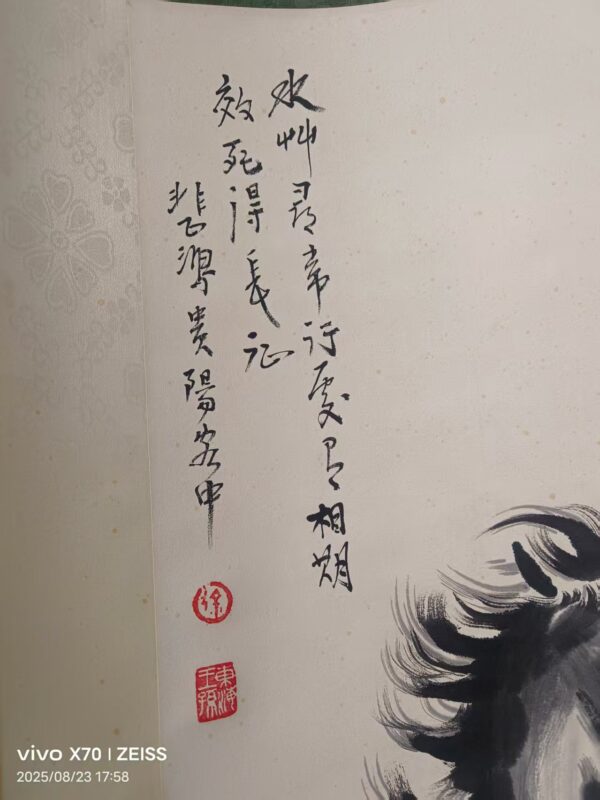 水艸尋常行處有相期
效死得長征
悲鴻貴陽客中
徐
東海
王孫
vivo X70 | ZEISS
2025/08/23 17:58